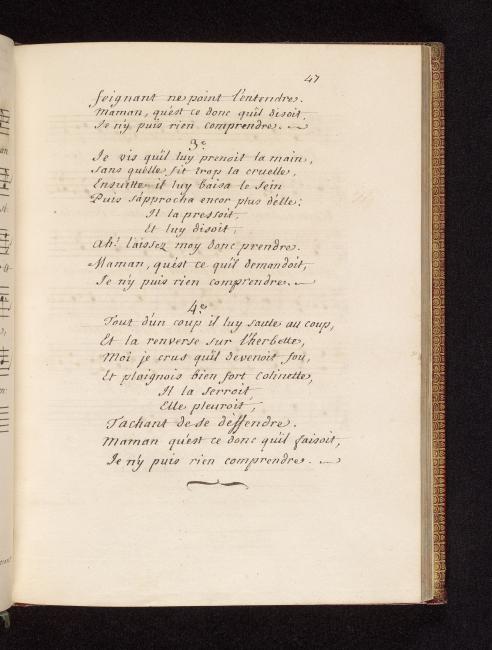 47
feignant ne point l'entendre.
Maman, qu'est ce donc qu'il disoit,
Je n'y puis rien comprendre.
3.e
Je vis qu'il luy prenoit la main,
Sans qu'elle fit trop la cruelle,
Ensuitte il luy baisa le sein
Puis s'approcha encor plus d'elle;
Il la pressoit,
Et luy disoit,
Ah! laissez moy donc prendre.
Maman, qu'est ce qu'il demandoit,
Je n'y puis rien comprendre.
4.e
Tout d'un coup il luy saute au coup,
Et la renverse sur l'herbette,
Moi je crus qu'il devenoit fou,
Et plaignois bien fort Colinette,
Il la serroit
Elle pleuroit,
Tachant de se déffendre.
Maman qu'est ce donc qu'il faisoit,
Je n'y puis rien comprendre.